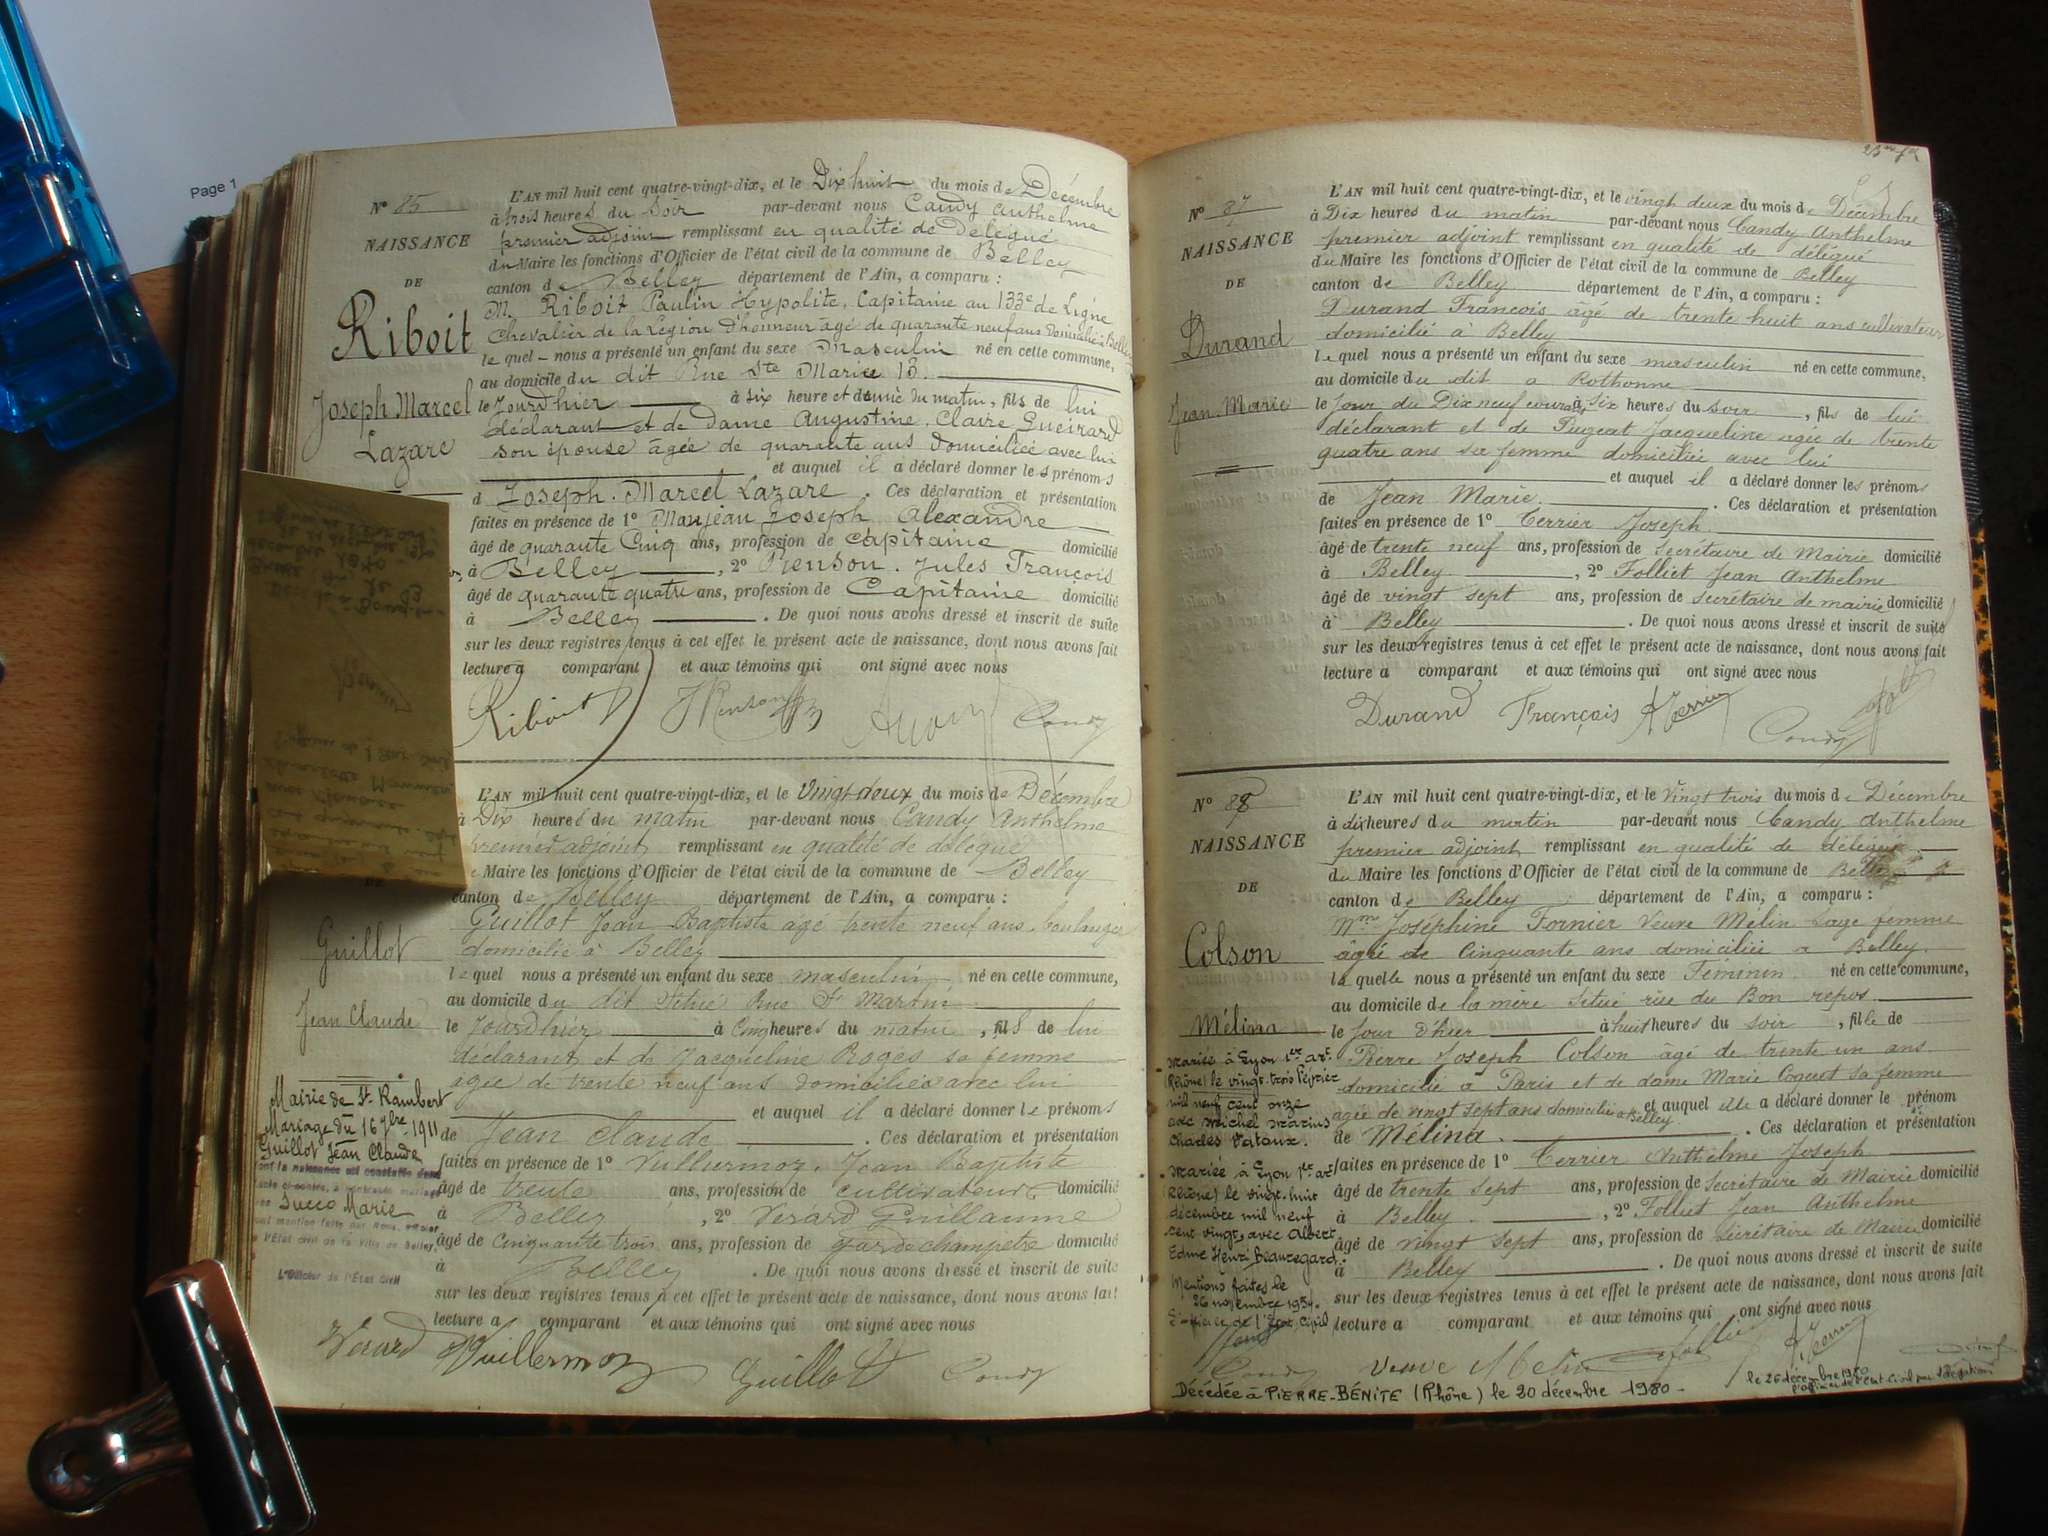 Page 1
N° 85
NAISSANCE
DE
Riboit
Joseph Marcel
Lazare
L'AN mil huit cent quatre-vingt-dix, et le Dix huit du mois de Décembre
à trois heures du Soir par-devant nous Candy Anthelme
premier adjoint remplissant en qualité de Délégué
du Maire les fonctions d'Officier de l'état civil de la commune de Belley
canton de Belley département de l'Ain, a comparu :
M. Riboit Paulin Hypolite, Capitaine au 133e de Ligne
Chevalier de la Légion d'honneur âgé de quarante neuf ans domicilié à Belley
le quel nous a présenté un enfant du sexe Masculin né en cette commune,
au domicile du dit Rue Ste Marie 10.
le Jour d'hier à six heure et demie du matin, fils de lui
déclarant et de Dame Augustine, Claire Gueirard
son épouse âgée de quarante ans domiciliée avec lui
et auquel il a déclaré donner les prénoms
d Joseph. Marcel Lazare. Ces déclaration et présentation
faites en présence de 1° Manjeau Joseph Alexandre
âgé de quarante Cinq ans, profession de capitaine domicilié
à Belley, 2° Renson. Jules François
âgé de quarante quatre ans, profession de Capitaine domicilié
à Belley. De quoi nous avons dressé et inscrit de suite
sur les deux registres tenus à cet effet le présent acte de naissance, dont nous avons fait
lecture a comparant et aux témoins qui ont signé avec nous
Riboit Candy
DE
Guillot
Jean Claude
L'AN mil huit cent quatre-vingt-dix, et le Vingt deux du mois de Décembre
à Dix heures du matin par-devant nous Candy Anthelme
premier adjoint remplissant en qualité de délégué
Maire les fonctions d'Officier de l'état civil de la commune de Belley
canton de Belley département de l'Ain, a comparu :
Guillot Jean Baptiste agé trente neuf ans boulanger
domicilié à Belley
le quel nous a présenté un enfant du sexe masculin né en cette commune,
au domicile du dit situé Rue St Martin
le Jour d'hier à Cinq heures du matin, fils de lui
déclarant et de Jacqueline Roges sa femme
agée de trente neuf ans domiciliée avec lui
et auquel il a déclaré donner le prénoms
de Jean Claude. Ces déclaration et présentation
faites en présence de 1° Vullermoz, Jean Baptiste
âgé de trente ans, profession de cultivateur domicilié
à Belley, 2° Verard Guillaume
âgé de cinquante trois ans, profession de garde champetre domicilié
à Belley. De quoi nous avons dressé et inscrit de suite
sur les deux registres tenus à cet effet le présent acte de naissance, dont nous avons fait
lecture a comparant et aux témoins qui ont signé avec nous
Verard Vuillermoz Guillot Candy
Mairie de St. Rambert
Mariage du 16 7bre 1911
Guillot Jean Claude
dont la naissance est constatée dans
Succo Marie
l'Etat civil de la Ville de Belley.
L'Officier de l'État Civil
N° 87
NAISSANCE
DE
Durand
Jean-Marie
L'AN mil huit cent quatre-vingt-dix, et le vingt deux du mois de Décembre
à Dix heures du matin par-devant nous Candy Anthelme
premier adjoint remplissant en qualité de délégué
du Maire les fonctions d'Officier de l'état civil de la commune de Belley
canton de Belley département de l'Ain, a comparu :
Durand François âgé de trente huit ans cultivateur
domicilié à Belley
le quel nous a présenté un enfant du sexe masculin né en cette commune,
au domicile du dit a Rothonne
le Jour du Dix neuf courant à six heures du soir, fils de lui
déclarant et de Pugeat Jacqueline agée de trente
quatre ans sa femme domiciliée avec lui
et auquel il a déclaré donner les prénoms
de Jean Marie. Ces déclaration et présentation
faites en présence de 1° Terrier Joseph
âgé de trente neuf ans, profession de Secrétaire de Mairie domicilié
à Belley, 2° Folliet Jean Anthelme
âgé de vingt sept ans, profession de secrétaire de mairie domicilié
à Belley. De quoi nous avons dressé et inscrit de suite
sur les deux registres tenus à cet effet le présent acte de naissance, dont nous avons fait
lecture a comparant et aux témoins qui ont signé avec nous
Durand François Terrier Candy
N° 88
NAISSANCE
DE
Colson
Mélina
L'AN mil huit cent quatre-vingt-dix, et le Vingt trois du mois de Décembre
à dix heures du matin par-devant nous Candy Anthelme
premier adjoint remplissant en qualité de délégué
du Maire les fonctions d'Officier de l'état civil de la commune de Belley
canton de Belley département de l'Ain, a comparu :
Mme Joséphine Fornier Veuve Mélin Sage femme
âgé de Cinquante ans domiciliée a Belley.
la quelle nous a présenté un enfant du sexe Féminin né en cette commune,
au domicile de la mère situé rue du Bon repos
le Jour d'hier à huit heures du soir, fille de
Pierre Joseph Colson âgé de trente un ans
domicilié à Paris et de dame Marie Coquet sa femme
agée de vingt sept ans domiciliée a Belley. et auquel elle a déclaré donner le prénom
de Mélina. Ces déclaration et présentation
faites en présence de 1° Terrier Anthelme Joseph
âgé de trente sept ans, profession de Secrétaire de Mairie domicilié
à Belley, 2° Folliet Jean Anthelme
âgé de vingt sept ans, profession de Secrétaire de Mairie domicilié
à Belley. De quoi nous avons dressé et inscrit de suite
sur les deux registres tenus à cet effet le présent acte de naissance, dont nous avons fait
lecture a comparant et aux témoins qui ont signé avec nous
Candy Veuve Melin
Mariée à Lyon 1er arr.
(Rhône) le vingt-trois Février
mil neuf cent onze
avec Michel Marius
Charles Vataux.
Mariée à Lyon 1er arr.
(Rhône) le vingt-huit
décembre mil neuf
cent vingt, avec Albert
Edme Henri Beauregard.
Mentions faites le
26 novembre 1954.
L'officier de l'Etat Civil
Décédée à PIERRE-BÉNITE (Rhône) le 20 décembre 1980 -
le 26 décembre 1980
l'officier de l'Etat Civil par délégation